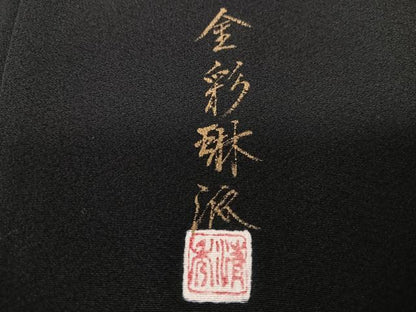 金彩琳派